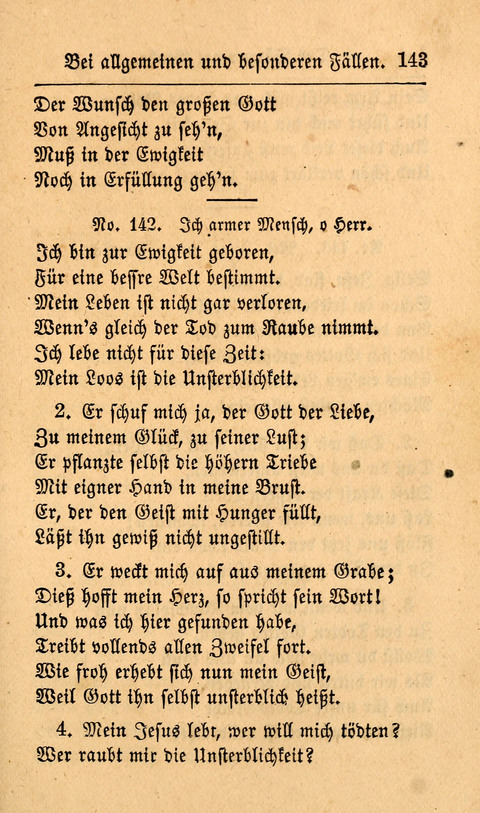 Bei allgemeinen und besonderen Fällen. 143
Der Wunsch den großen Gott
Von Angesicht zu seh'n,
Muß in der Ewigkeit
Noch in Erfüllung geh'n.
No. 142. Ich armer Mensch, o Herr.
Ich bin zur Ewigkeit geboren,
Für eine bessre Welt bestimmt.
Mein Leben ist nicht gar verloren,
Wenn's gleich der Tod zum Raube nimmt.
Ich lebe nicht für diese Zeit:
Mein Loos ist die Unsterblichkeit.
2. Er schuf mich ja, der Gott der Liebe,
Zu meinem Glück, zu seiner Lust;
Er pflanzte selbst die höhern Triebe
Mit eigner Hand in meine Brust.
Er, der den Geist mit Hunger füllt,
Läßt ihn gewiß nicht ungestillt.
3. Er weckt mich auf aus meinem Grabe;
Dieß hofft mein Herz, so spricht sein Wort!
Und was ich hier gefunden habe,
Treibt vollends allen Zweifel fort.
Wie froh erhebt sich nun mein Geist,
Weil Gott ihn selbst unsterblich heißt.
4. Mein Jesus lebt, wer will mich tödten?
Wer raubt mir die Unsterblichkeit?